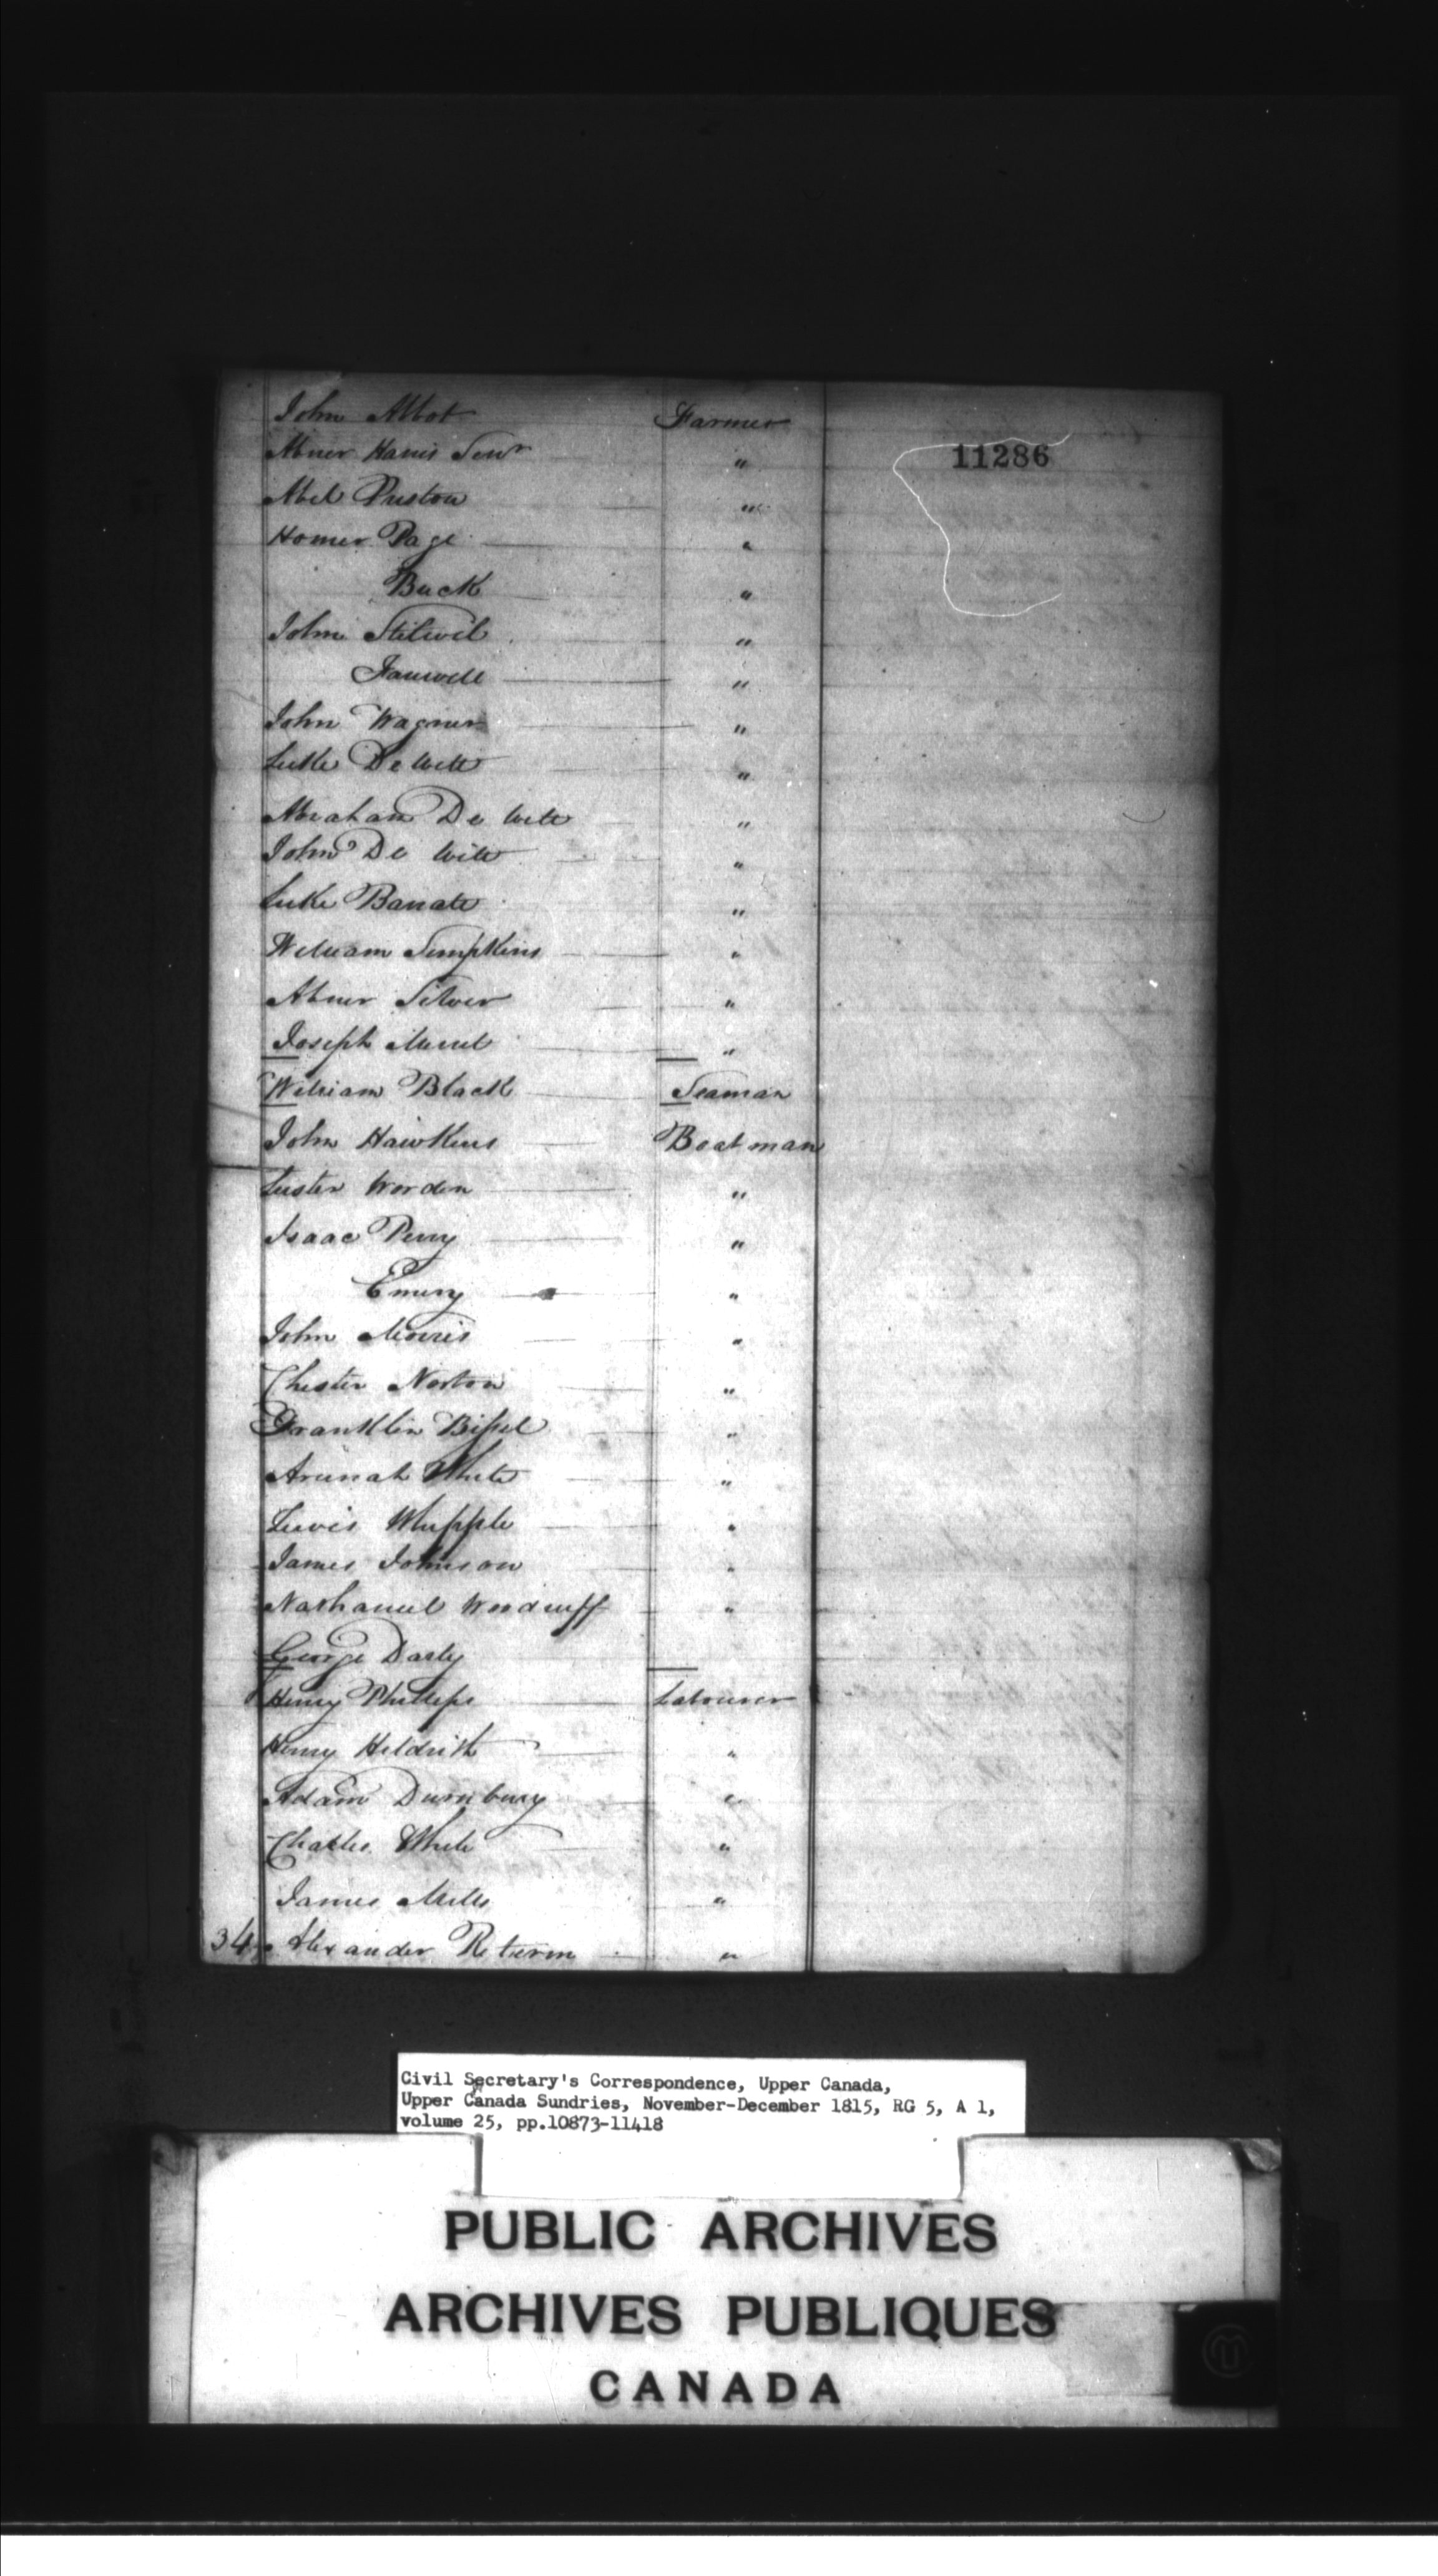 John Abbot Farmer
Abner Harris Senr "
11286
Abel Preston "
Homer Page "
Buck "
John Stilwel "
Farewell "
John Wagner "
Luke De Witt "
Abraham De Witt "
John De Witt "
Luke Banate "
William Simpkins "
Abner Silver "
Joseph Merrel "
William Black Seaman
John Hawkins Boatman
Luster Worden "
Isaac Perry "
Emery "
John Morris "
Chester Norton "
Franklin Bissel "
Arunah White "
Lewis Whipple "
James Johnson "
Nathaniel Woodruff "
George Darly
Henry Phillips Labourer
Henry Heldrith "
Adam Durnbury "
Charles White "
James Mills "
34 Alexander Returm "
Civil Secretary's Correspondence, Upper Canada,
Upper Canada Sundries, November-December 1815, RG 5, A 1,
volume 25, pp.10873-11418
PUBLIC ARCHIVES
ARCHIVES PUBLIQUES
CANADA